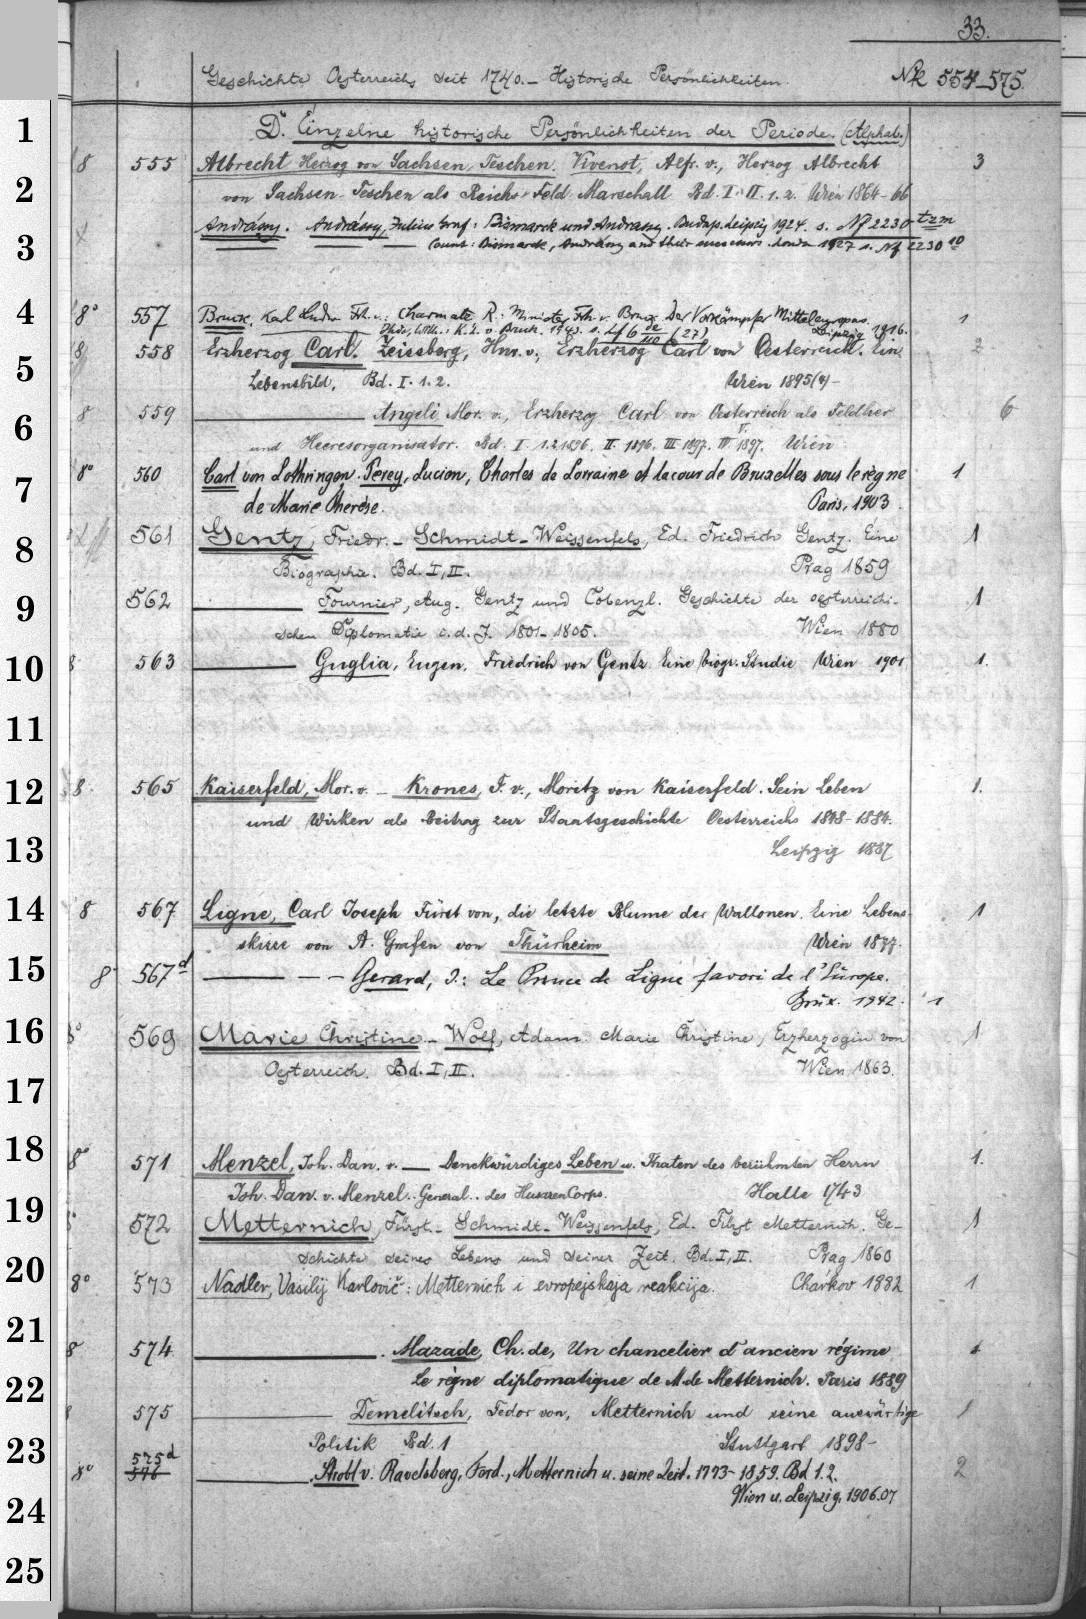 33.
Geschichte Oesterreichs seit 1740. – Historische Persönlichkeiten. Nr. 554–575.
1
D. Einzelne historische Persönlichkeiten der Periode. (Alphab.)
8 555 Albrecht Herzog von Sachsen Teschen. Vivenot, Alfr. v., Herzog Albrecht 3
2
von Sachsen-Teschen als Reichs-Feld-Marschall Bd. I. II. 1. 2. Wien 1864–66
Andrássy. Andrássy, Julius Graf: Bismarck und Andrassy. Budap. Leipzig 1924. s. Nr 2230
3
Count: Bismarck, Andrássy and their successors. London 1927 s. Nr 2230 10
4
8° 557 Bruck, Karl Ludw. Frh. v.: Charmatz R.: Minister Frh. v. Bruck. Der Vorkämpfer Mitteleuropas. 1
Leipzig 1916.
K. L. v. Bruck. 1943. s.
8 558 Erzherzog Carl. Zeissberg, Hnr. v., Erzherzog Carl von Oesterreich. Ein 2
5
Lebensbild, Bd. I. 1. 2. Wien 1895 –
8 559 Angeli Mor. v., Erzherzog Carl von Oesterreich als Feldherr 6
6
und Heeresorganisator. Bd. I 1.2 1896. II 1896. III 1897. IV V. 1897. Wien
8° 560 Carl von Lothringen. Perey, Lucien, Charles de Lorraine et la cour de Bruxelles sous le règne 1
7
de Marie Therèse. Paris, 1903.
561 Gentz, Friedr. – Schmidt-Weissenfels, Ed. Friedrich Gentz. Eine 1
8
Biographie. Bd. I, II. Prag 1859
562 Fournier, Aug. Gentz und Cobenzl. Geschichte der oesterreichi- 1
9
schen Diplomatie i. d. J. 1801–1805. Wien 1880
8 563 Guglia, Eugen. Friedrich von Gentz. Eine biogr. Studie Wien 1901 1.
10
11
12
8. 565 Kaiserfeld, Mor. v. – Krones, F. v., Moritz von Kaiserfeld. Sein Leben 1.
und Wirken als Beitrag zur Staatsgeschichte Oesterreichs 1848–1884.
13
Leipzig 1887
14
8 567 Ligne, Carl Joseph Fürst von, die letzte Blume der Wallonen. Eine Lebens- 1
skizze von A. Grafen von Thürheim Wien 1877.
15
8 567 d – – Gerard, J.: Le Prince de Ligne favori de l'Europe.
Brux. 1942. 1
16
8° 569 Marie Christine – Wolf, Adam. Marie Christine, Erzherzogin von 1
Oesterreich. Bd. I, II. Wien 1863.
17
18
8° 571 Menzel, Joh. Dan. v. — Denckwürdiges Leben u. Thaten des berühmten Herrn 1.
Joh. Dan. v. Menzel. General.. des HusarenCorps. Halle 1743
19
572 Metternich, Fürst – Schmidt-Weissenfels, Ed. Fürst Metternich. Ge- 1
schichte seines Lebens und seiner Zeit. Bd. I, II. Prag 1860
20
8° 573 Nadler, Vasilij Karlovič: Metternich i evropejskaja reakcija. Charkov 1882 1
21
8 574 Mazade, Ch. de, Un chancelier d'ancien régime 1
22
Le règne diplomatique de M. de Metternich. Paris 1889
575 Demelitsch, Fedor von, Metternich und seine auswärtige 1
Politik Bd. 1 Stuttgart 1898–
23
575d
8° 576 Strobl v. Ravelsberg, Ferd., Metternich u. seine Zeit. 1773–1859. Bd 1. 2. 2
Wien u. Leipzig, 1906.07
24
25